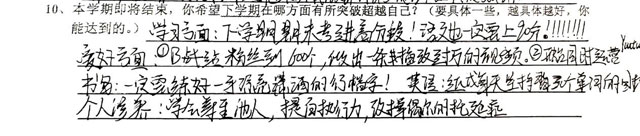 10、本学期即将结束，你希望下学期在哪方面有所突破超越自己？（要具体一些，越具体越好，你
能达到的。）学习方面：下学期期末考进高分段！语文也一定要上90分！！！！！！！
爱好方面：①B站粉丝到600个，做出一条播放过万的视频。②
书写：一定要练好一手的行楷字！ 英语：每天坚持背五个单词
个人修养：学会尊重他人，提高执行力，改掉偶尔的拖延症